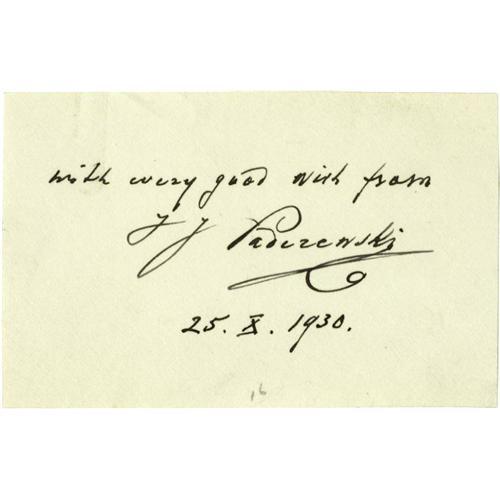 with every good wish from
I J Paderewski
25. X. 1930.
16